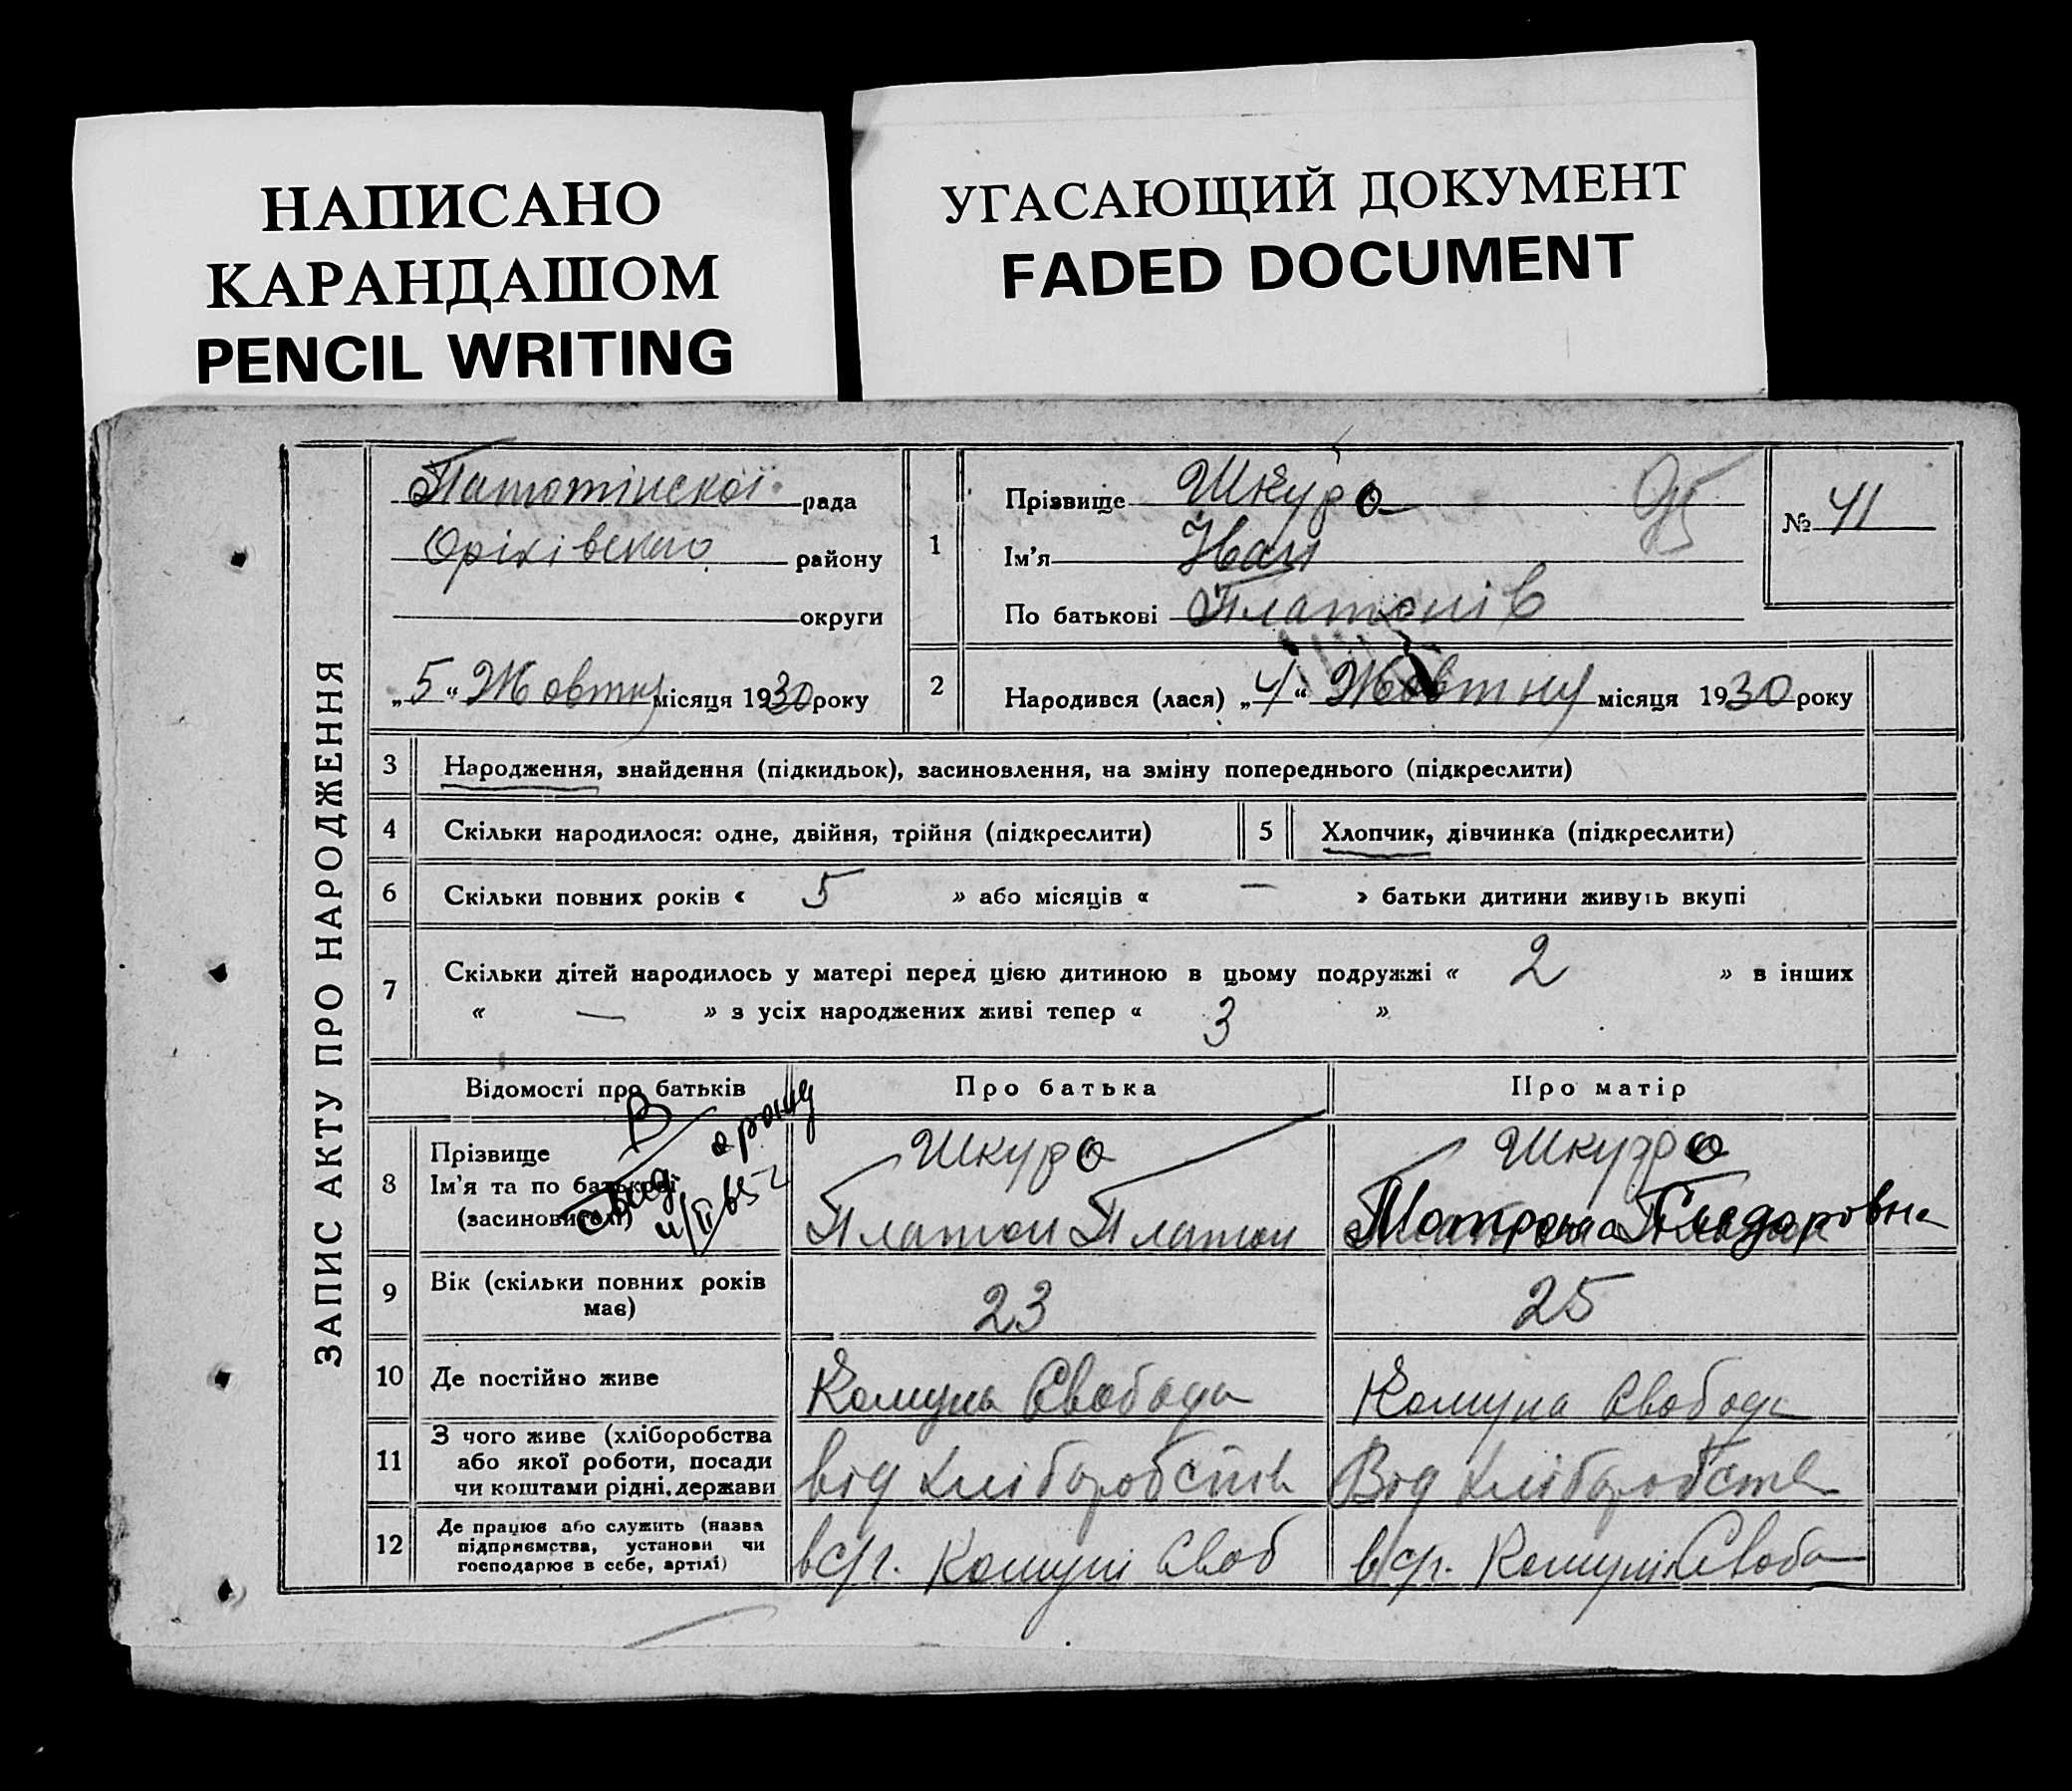 НАПИСАНО
КАРАНДАШОМ
PENCIL WRITING
УГАСАЮЩИЙ ДОКУМЕНТ
FADED DOCUMENT
ЗАПИС АКТУ ПРО НАРОДЖЕННЯ
рада
Оріхівського району
округи
„5“ Жовтня місяця 1930 року
1
Прізвище Шкуро
Ім'я Иван
По батькові Платонів
№ 41
2 Народився (лася) „4“ Жовтня місяця 1930 року
3 Народження, знайдення (підкидьок), засиновлення, на зміну попереднього (підкреслити)
4 Скільки народилося: одне, двійня, трійня (підкреслити) 5 Хлопчик, дівчинка (підкреслити)
6 Скільки повних років « 5 » або місяців « — » батьки дитини живуть вкупі
7 Скільки дітей народилось у матері перед цією дитиною в цьому подружжі « 2 » в інших
« — » з усіх народжених живі тепер « 3 »
Відомості про батьків Про батька Про матір
8 Прізвище
Ім'я та по батькові
(засиновителі)
Шкуро
Платон Платон
Шкуро
Мотрона Сидоровна
9 Вік (скільки повних років
має)
23
25
10 Де постійно живе
Комуна Свобода
Комуна Свобода
11 З чого живе (хліборобства
або якої роботи, посади
чи коштами рідні, держави
від хліборобств
Від хліборобств
12 Де працює або служить (назва
підприємства, установи чи
господарює в себе, артілі)
в с/г. Комуні Своб
в с/г. Комуні Свобо